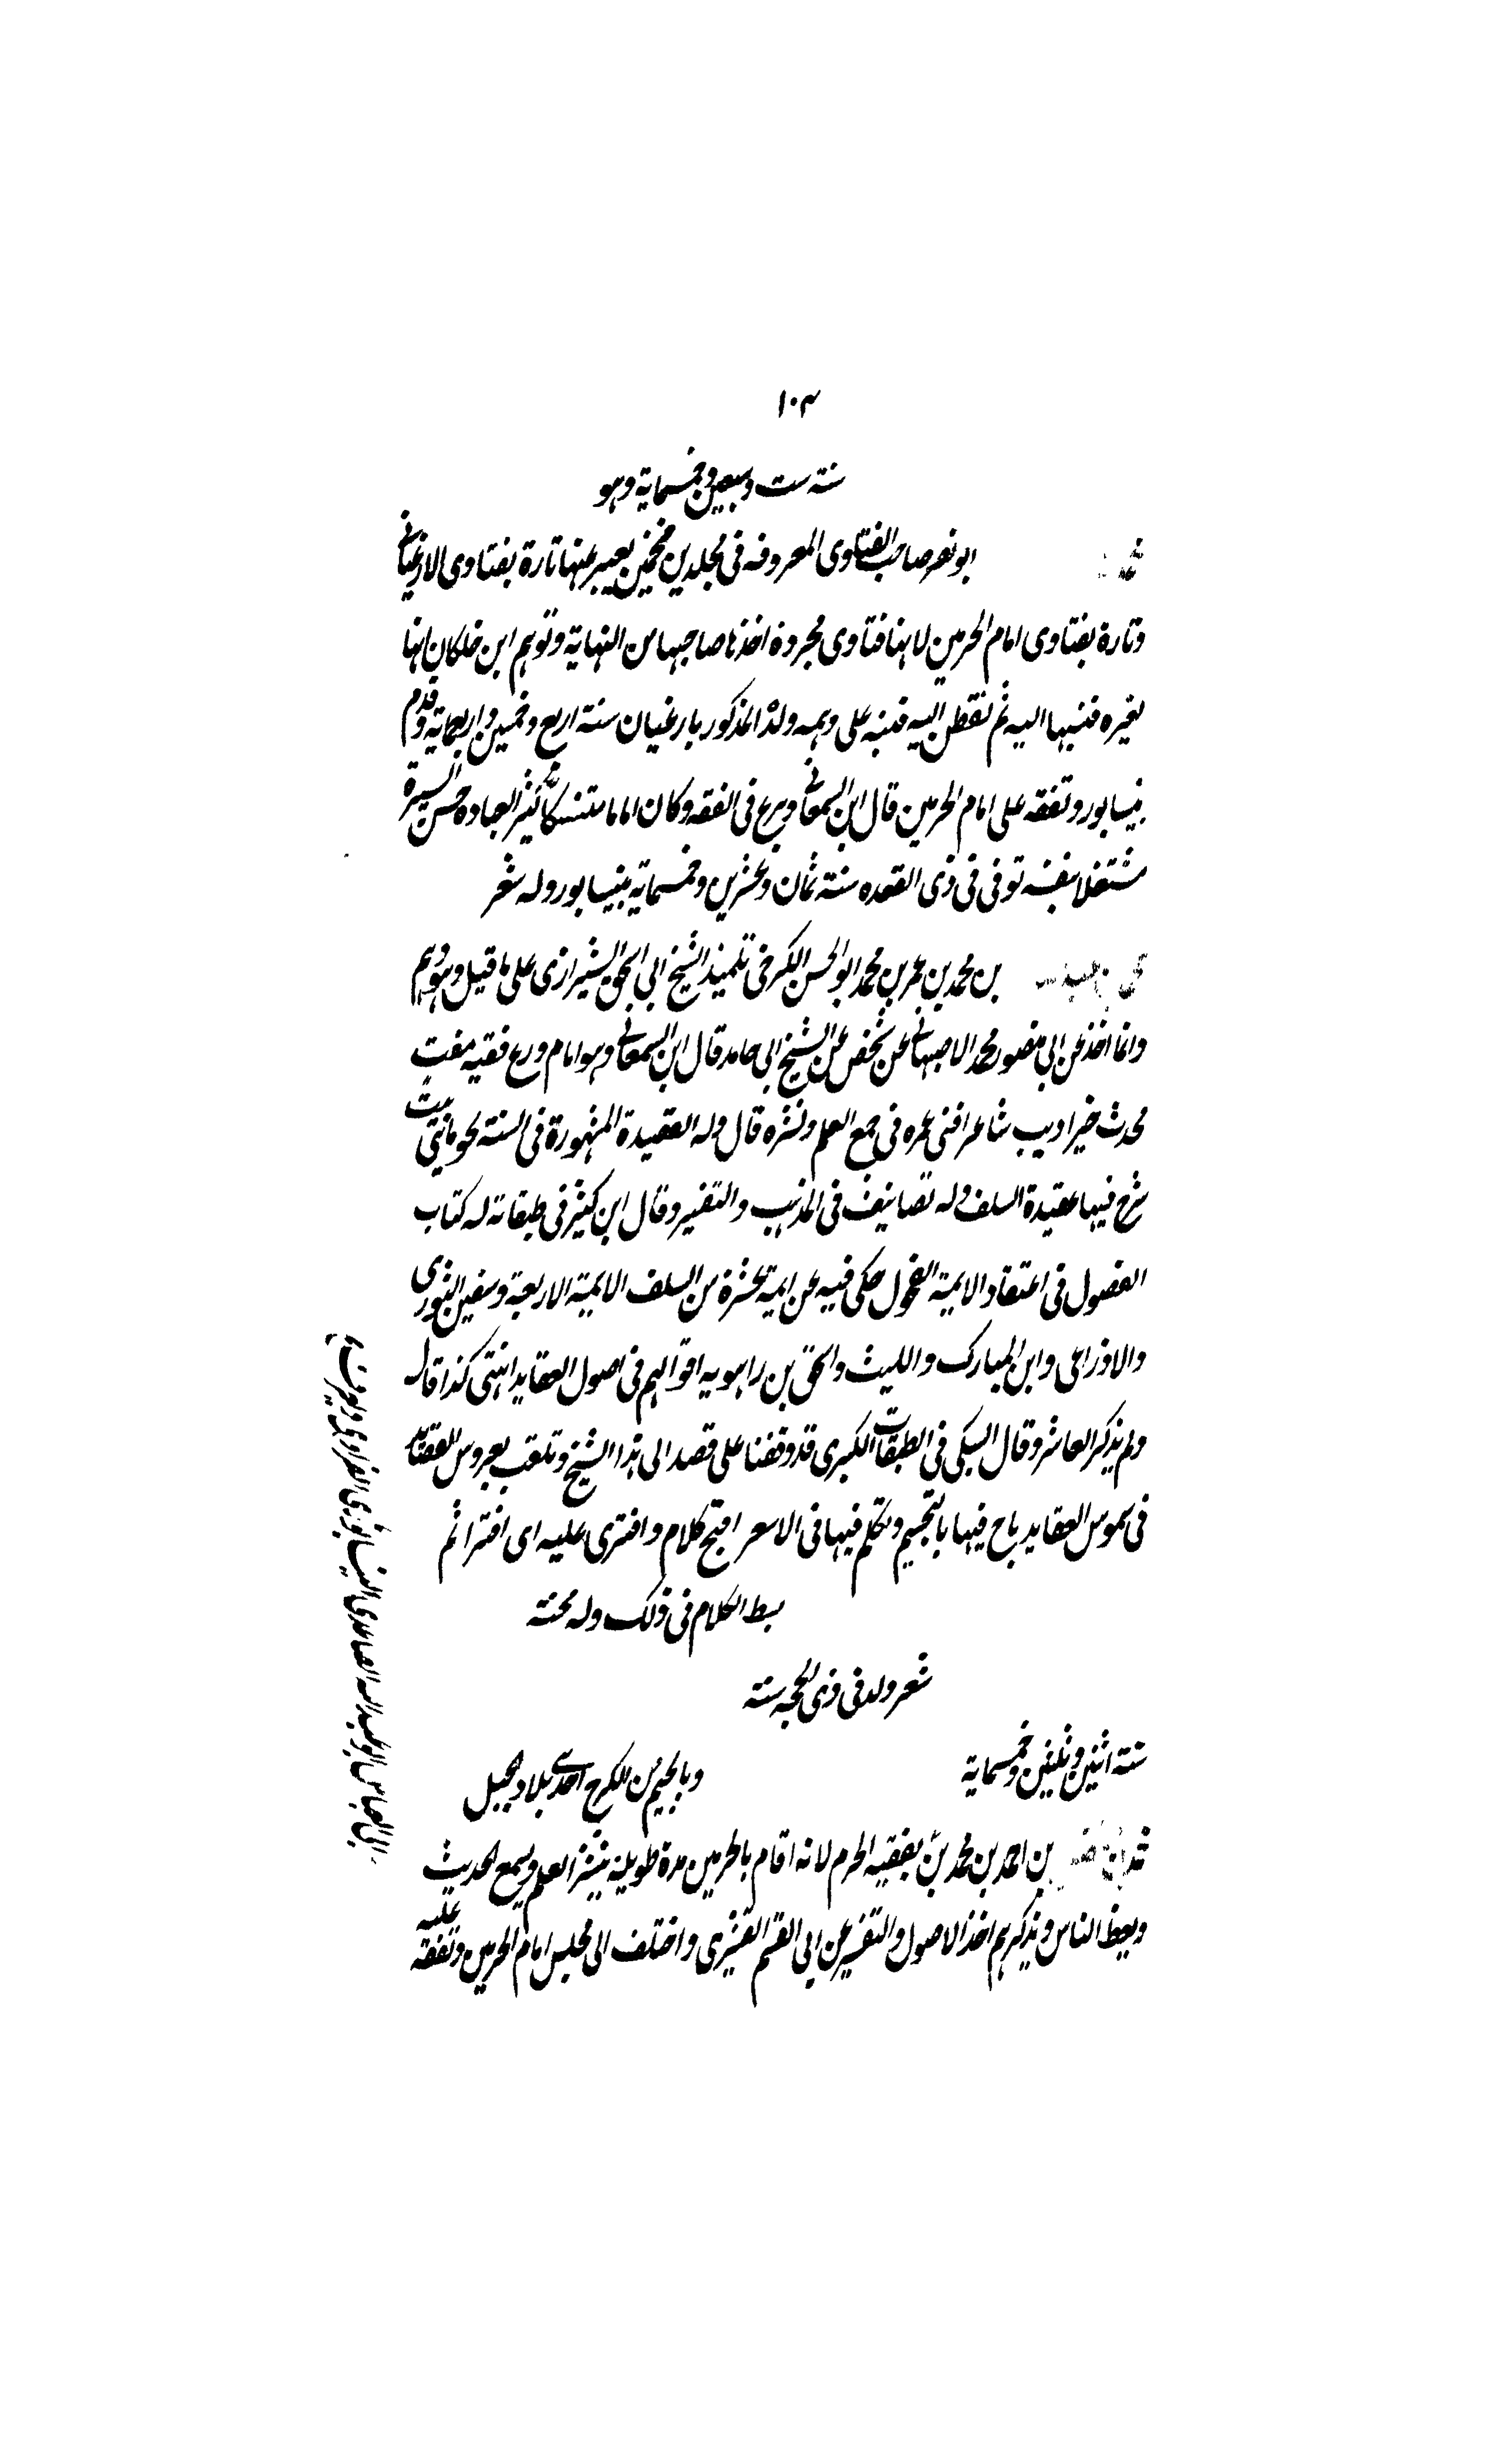 ١٠٣
سنة ست وسبعين وخمسماية وهو
محمد ابو نصر صاحب الفتاوى المعروفه فى مجلدين ضخمين يعبر عنها تارة بفتاوى الارغيانى
وتارة بفتاوى امام الحرمين لانها فتاوى مجردة اخذها صاحبها من النهاية وتوهم ابن خلكان انها
لغيره فنسبها اليه ثم تفطن اليه فنبه على وهمه ولد المذكور بارغيان سنة اربع وخمسين واربعماية وقدم
نيسابور وتفقه على امام الحرمين قال ابن السمعانى وبرع فى الفقه وكان اماما متنسكا كثير العباده حسن السيرة
مشتغلا بنفسه توفى فى ذى القعده سنة ثمان وعشرين وخمسماية بنيسابور وله شعر
بن محمد بن عمر بن محمد ابو الحسن الكرخى تلميذ الشيخ ابى اسحق الشيرازى على ما قيل وهو وهم
وانما اخذ عن ابى منصور محمد الاصبهانى عن شخص عن الشيخ ابى حامد قال ابن السمعانى وهو امام ورع فقيه مفت
محدث خير اديب شاعر افنى عمره فى جمع العلم ونشره قال وله القصيدة المشهورة فى السنة نحو مائتى بيت
شرح فيها عقيدة السلف وله تصانيف فى المذهب والتفسير وقال ابن كثير فى طبقاته له كتاب
الفصول فى اعتقاد الايمة الفحول حكى فيه عن ايمة عشرة من السلف الايمة الاربعة وسفين الثورى
والاوزاعى وابن المبارك والليث واسحق بن راهويه اقوالهم فى اصول العقايد انتهى كذا قاله
ولم يذكر العاشر وقال السبكى فى الطبقات الكبرى قد وقفنا على قصد الى هذا الشيخ وتلقب بعروس القصائد
فى شموس العقايد باح فيها بالتجسيم وتكلم فيها فى الاسعر اقبح كلام وافترى عليه اى افترا ثم
بسط الكلام فى ذلك وله محنة
شعر ولد فى ذى الحجه سنة
سنة اثنين وثلثين وخمسماية وبالجيم من الكرج احدى بلاد الجبل
بن احمد بن محمد بن بفقيه الحرم لانه اقام بالحرمين مدة طويلة ينشر العلم ويسمع الحديث
ويعظ الناس ويذكرهم اخذ الاصول والتفسير عن ابى القسم القشيرى واختلف الى مجلس امام الحرمين وتفقه عليه
ابى العباس ابو عبد الله الصاعدى النيسابورى الفراوى ويعرف